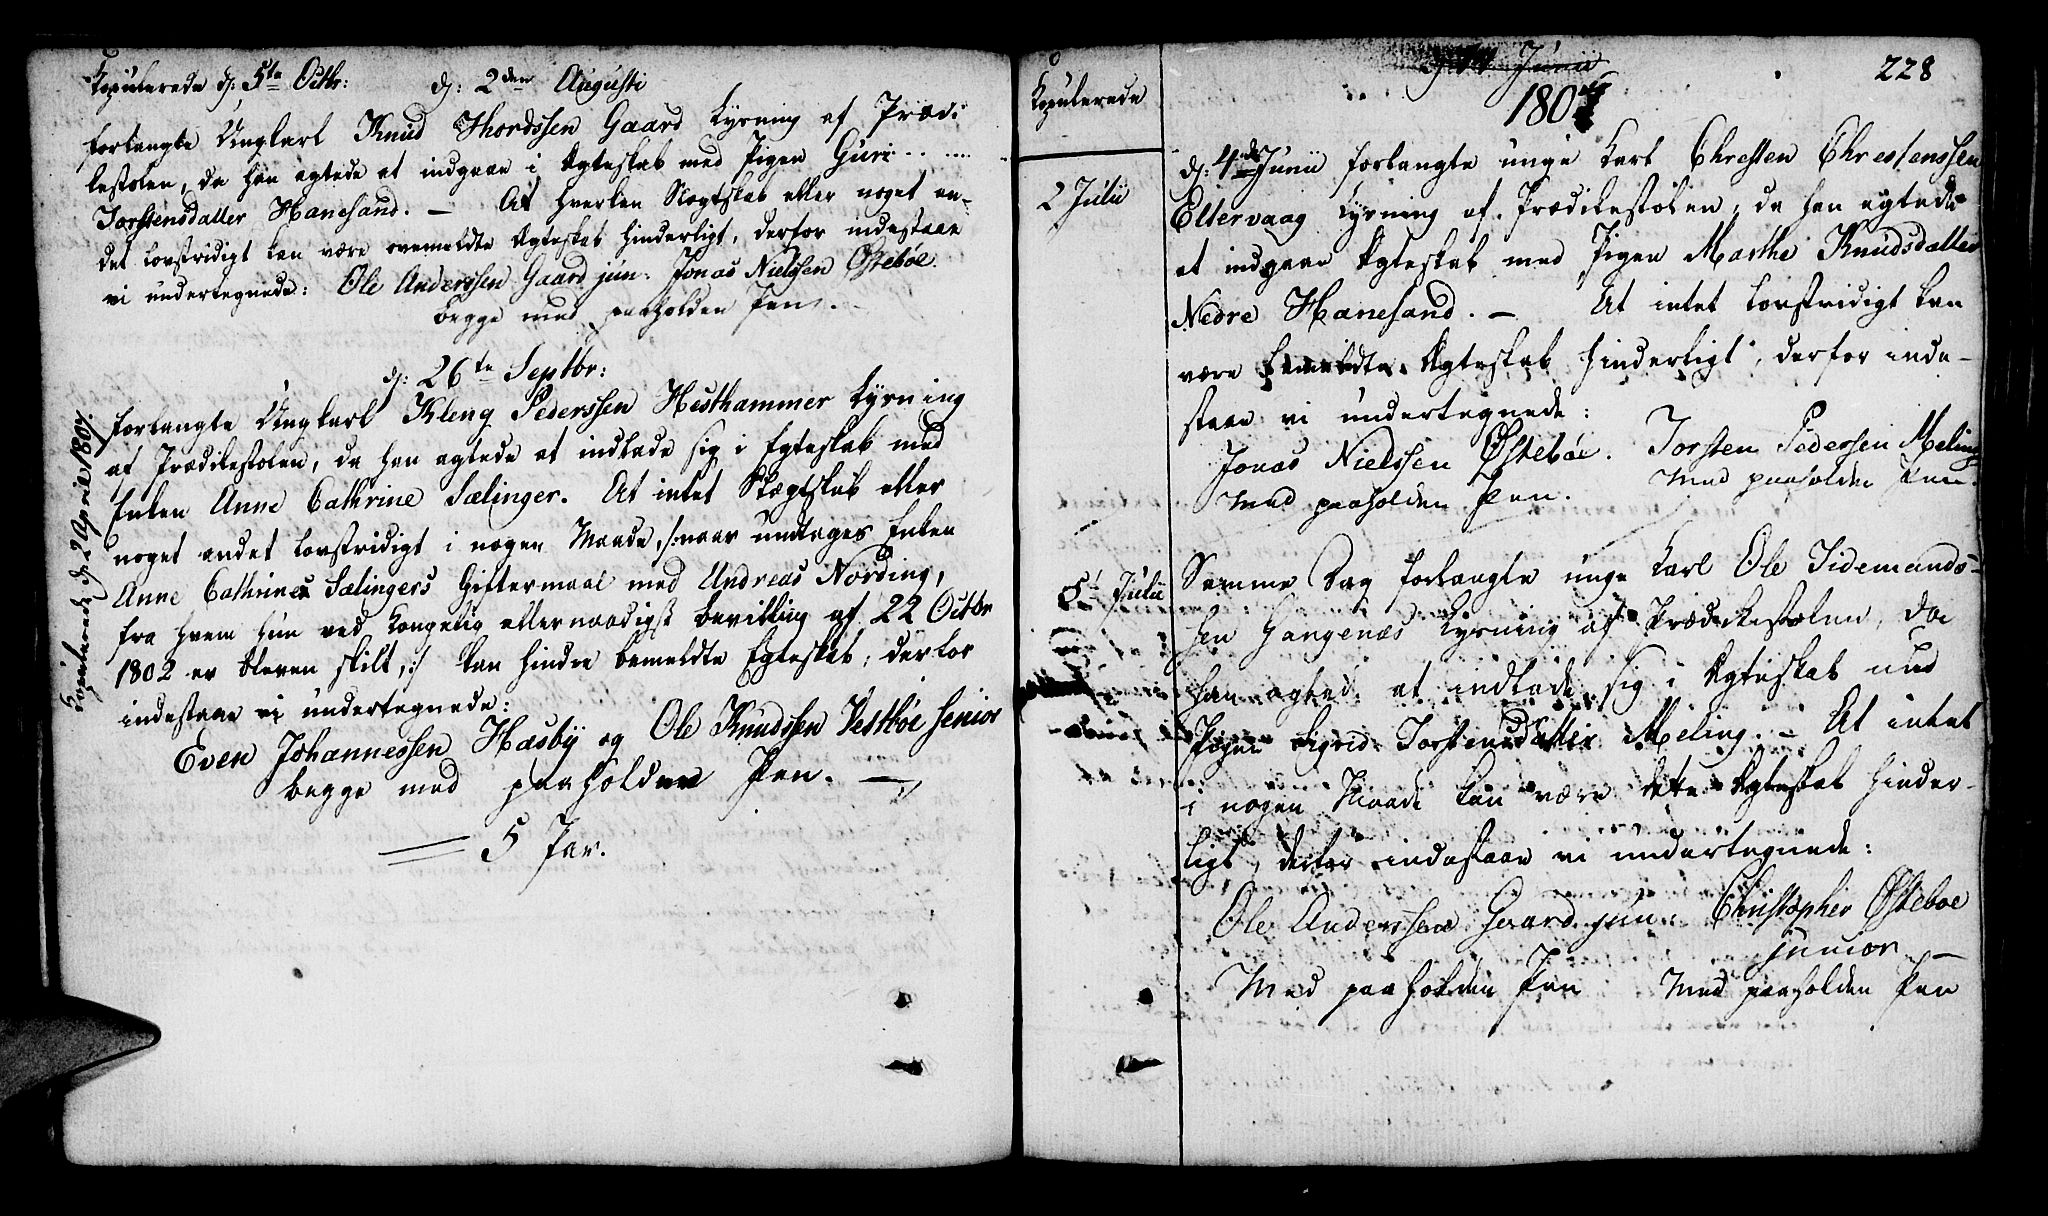 Kopulerede d: 5te Octbr: d: 2den Augusti
forlangte Ungkarl Knud Thordssen Gaard Lysning af Prædi-
kestolen, da han agtede at indgaae i Ægteskab med Pigen Guri
Torstensdatter Hanesand. — At hverken Slægtskab eller noget an-
det lovstridigt kan være ovenmeldte Ægteskab hinderligt, derfor indestaae
vi undertegnede: Ole Anderssen Gaard jun: Jonas Nielssen Østebøe.
begge med paaholden Pen. —
d: 26te Septbr:
forlangte Ungkarl Kleng Pederssen Hesthammer Lysning
af Prædikestolen, da han agtede at indlade sig i Egteskab med
Enken Anne Cathrine Sælinger. At intet Slægtskab eller
noget andet lovstridigt i nogen Maade, /: naar undtages Enken
Anne Cathrines Sælingers Giftermaal med Andreas Nording,
fra hvem hun ved Kongelig allernaadigst Bevilling af 22 Octbr
1802 er bleven skilt, :/ kan hindre bemeldte Egteskab, derfor
indestaae vi undertegnede:
Even Johannessen Hasby og Ole Knudssen Vestbøe senior
begge med paaholden Pen. —
5 Par.
Kopulerede d: 2 April 1807.
Kopulerede
2 Julii
5t Julii
Junii
228
180
d: 4de Junii forlangte unge Karl Chresten Chrestenssen
Eltervaag Lysning af Prædikestolen, da han agtede
at indgaae Ægteskab med Pigen Marthe Knudsdatter
Nedre Hanesand. — At intet lovstridigt kan
være bemeldte Ægteskab hinderligt, derfor inde-
staae vi undertegnede:
Jonas Nielssen Østebøe. Torsten Pedersen Meling
Med paaholden Pen. Med paaholden Pen.
Samme Dag forlangte unge Karl Ole Tidemands-
sen Gangenæs Lysning af Prædikestolen, da
han agted at indlade sig i Ægteskab med
Pigen Sigrid Torstensdatter Meling. — At intet
i nogen Maade kan være dette Ægteskab hinder-
ligt, derfor indestaae vi undertegnede:
Ole Anderssen Gaard jun: Christopher Østeboe
junior —
Med paaholden Pen Med paaholden Pen